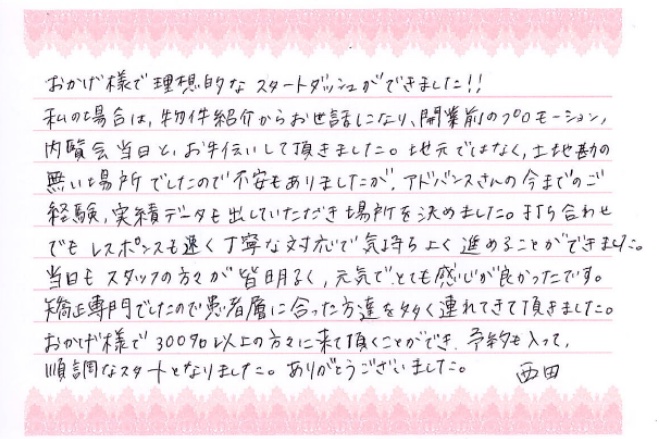 おかげ様で理想的なスタートダッシュができました!!
私の場合は、物件紹介からお世話になり、開業前のプロモーション、
内覧会当日と、お手伝いして頂きました。地元ではなく、土地勘の
無い場所でしたので不安もありましたが、アドバンスさんの今までのご
経験、実績データも出していただき場所を決めました。打ち合わせ
でもレスポンスも速く丁寧な対応で気持ちよく進めることができました。
当日もスタッフの方々が皆明るく、元気でとても感じが良かったです。
矯正専門でしたので患者層に合った方達を多く連れてきて頂きました。
おかげ様で300名以上の方々に来て頂くことができ、予約も入って、
順調なスタートとなりました。ありがとうございました。 西田